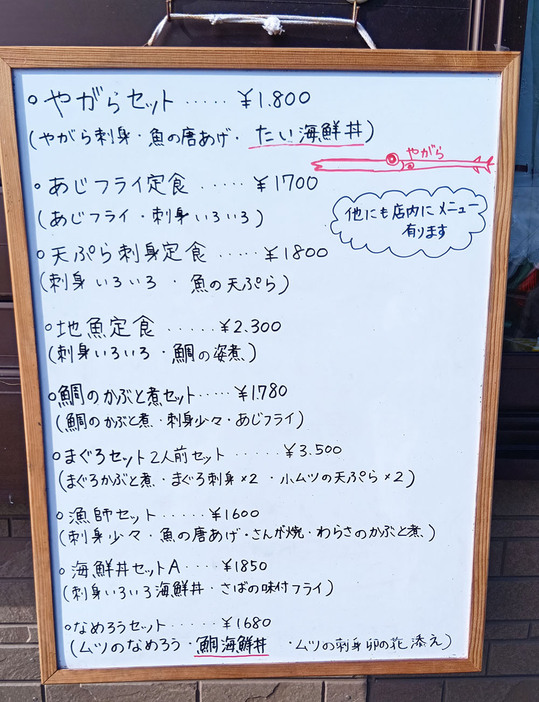 ○やがらセット・・・・・ ¥1.800
(やがら刺身・魚の唐あげ・たい海鮮丼)
やがら
○あじフライ定食・・・・・ ¥1700
(あじフライ・刺身いろいろ)
他にも店内にメニュー
有ります
○天ぷら刺身定食・・・・・ ¥1800
(刺身いろいろ・魚の天ぷら)
○地魚定食・・・・・ ¥2.300
(刺身いろいろ・鯛の姿煮)
○鯛のかぶと煮セット・・・・・ ¥1.780
(鯛のかぶと煮・刺身少々・あじフライ)
○まぐろセット2人前セット・・・・・ ¥3.500
(まぐろかぶと煮・まぐろ刺身×2・小ムツの天ぷら×2)
○漁師セット・・・・ ¥1600
(刺身少々・魚の唐あげ・さんが焼・わらさのかぶと煮)
○海鮮丼セットA・・・・ ¥1850
(刺身いろいろ海鮮丼・さばの味付フライ)
○なめろうセット・・・・・ ¥1680
(ムツのなめろう・鯛海鮮丼・ムツの刺身卯の花添え)